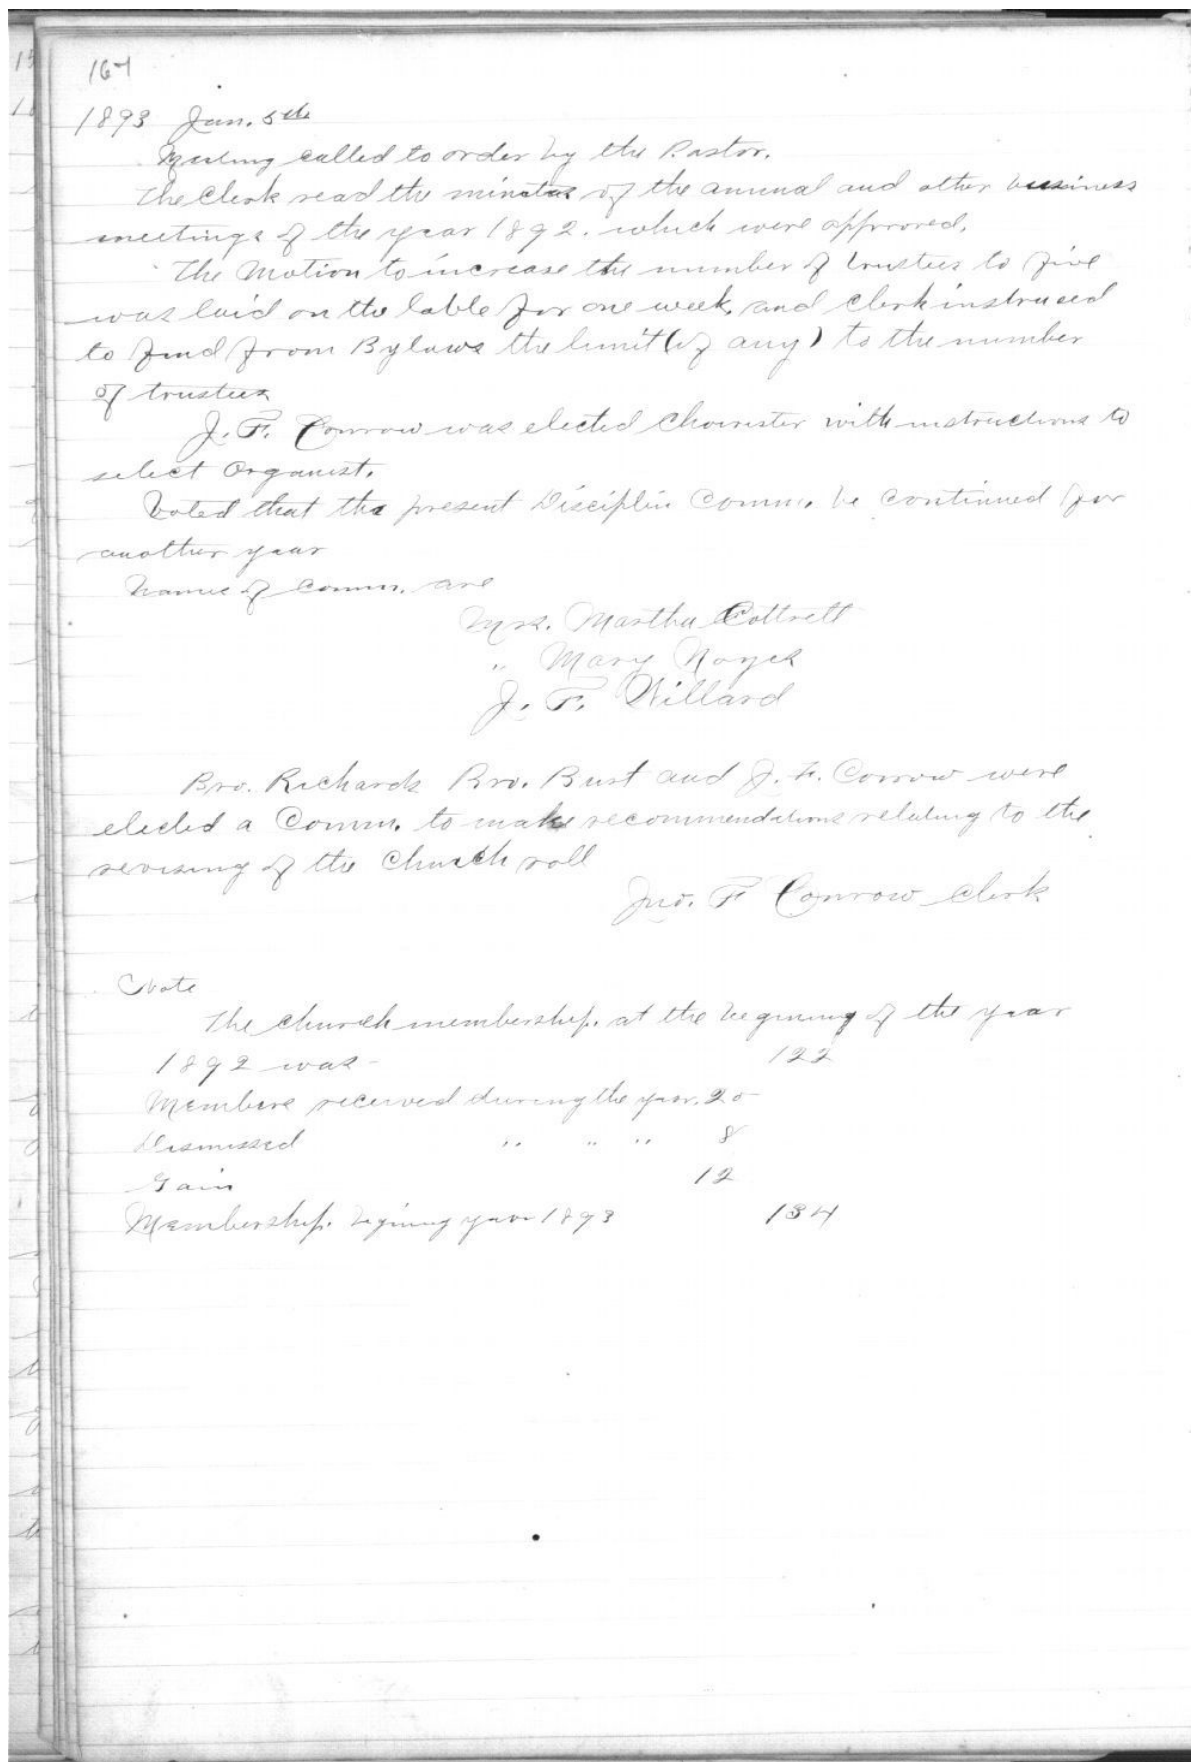 164
1893 Jan. 5th
Meeting called to order by the Pastor.
The Clerk read the minutes of the annual and other business
meetings of the year 1892. which were approved.
The Motion to increase the number of trustees to five
was laid on the table for one week, and clerk instrused
to find from Bylaws the limit (if any) to the number
of trustees
J. F. Conrow was elected Chorister with instructions to
select Organist.
Voted that the present Disciplin Comm. be continued for
another year
Names of Comm. are
Mrs. Martha Cottrell
" Mary Noyes
J. F. Willard
Bro. Richards Bro. Burt and J. F. Conrow were
elected a Comm. to make recommendations relating to the
revising of the Church roll
Jno. F Conrow Clerk
Note
The church membership. at the begining of the year
1892 was - 122
Members received during the year. 20
Dismissed " " " 8
Gain 12
Membership. begining year 1893 134